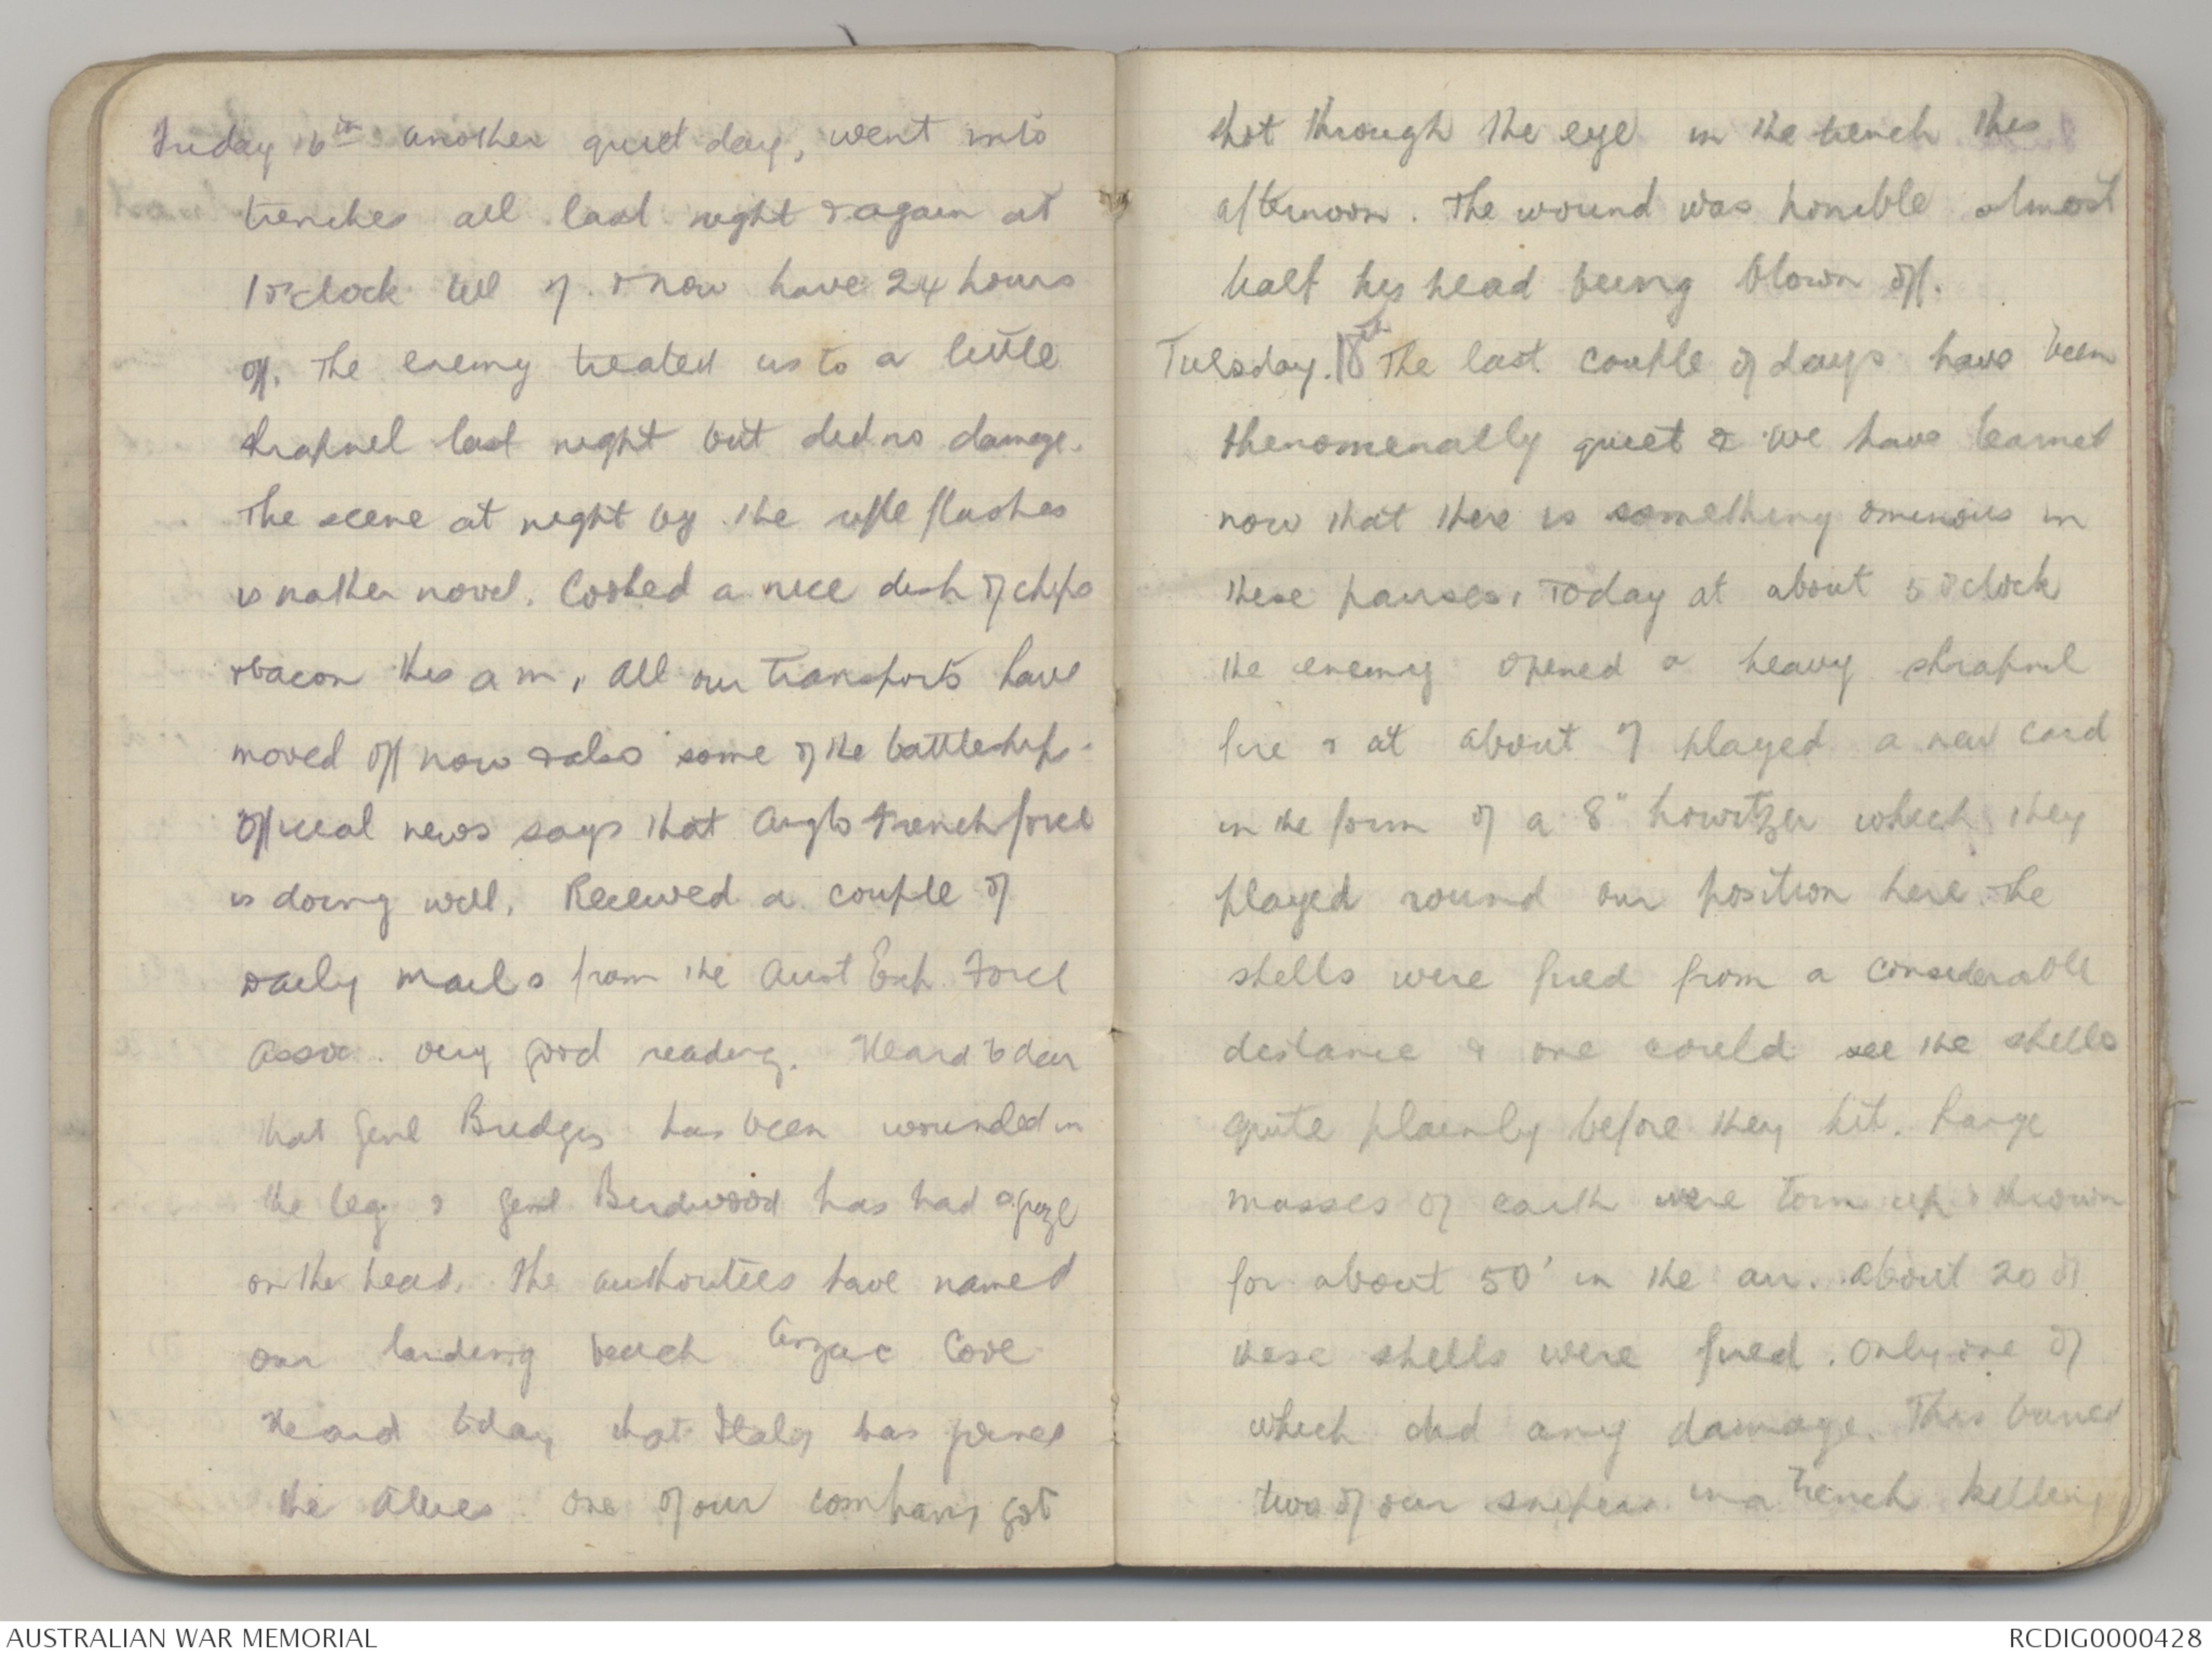 Friday 16th another quiet day, went into
trenches all last night & again at
1 o'clock till 7. & now have 24 hours
off. The enemy treated us to a little
shrapnel last night but did no damage.
The scene at night by the rifle flashes
is rather novel. Cooked a nice dish of chips
& bacon this am, all our transports have
moved off now & also some of the battleships.
Official news says that Anglo French force
is doing well. Received a couple of
Daily Mails from the Aust Exp. Force
Assoc. very good reading. Heard today
that Genl Bridges has been wounded in
the leg & Genl Birdwood has had a graze
on the head. The authorities have named
our landing beach Anzac Cove
Heard today that Italy has joined
the Allies. One of our company got
shot through the eye in the trench this
afternoon. The wound was horrible almost
half his head being blown off.
Tuesday. 18th The last couple of days have been
phenomenally quiet & we have learned
now that there is something ominous in
these pauses, Today at about 5 o'clock
the enemy opened a heavy shrapnel
fire & at about 7 played a new card
in the form of a 8" howitzer which they
played round our position here. The
shells were fired from a considerable
distance & one could see the shells
quite plainly before they hit. Large
masses of earth were torn up & thrown
for about 50' in the air. About 20 of
these shells were fired. Only one of
which did any damage. This buried
two of our snipers in a trench killing
AUSTRALIAN WAR MEMORIAL
RCDIG0000428